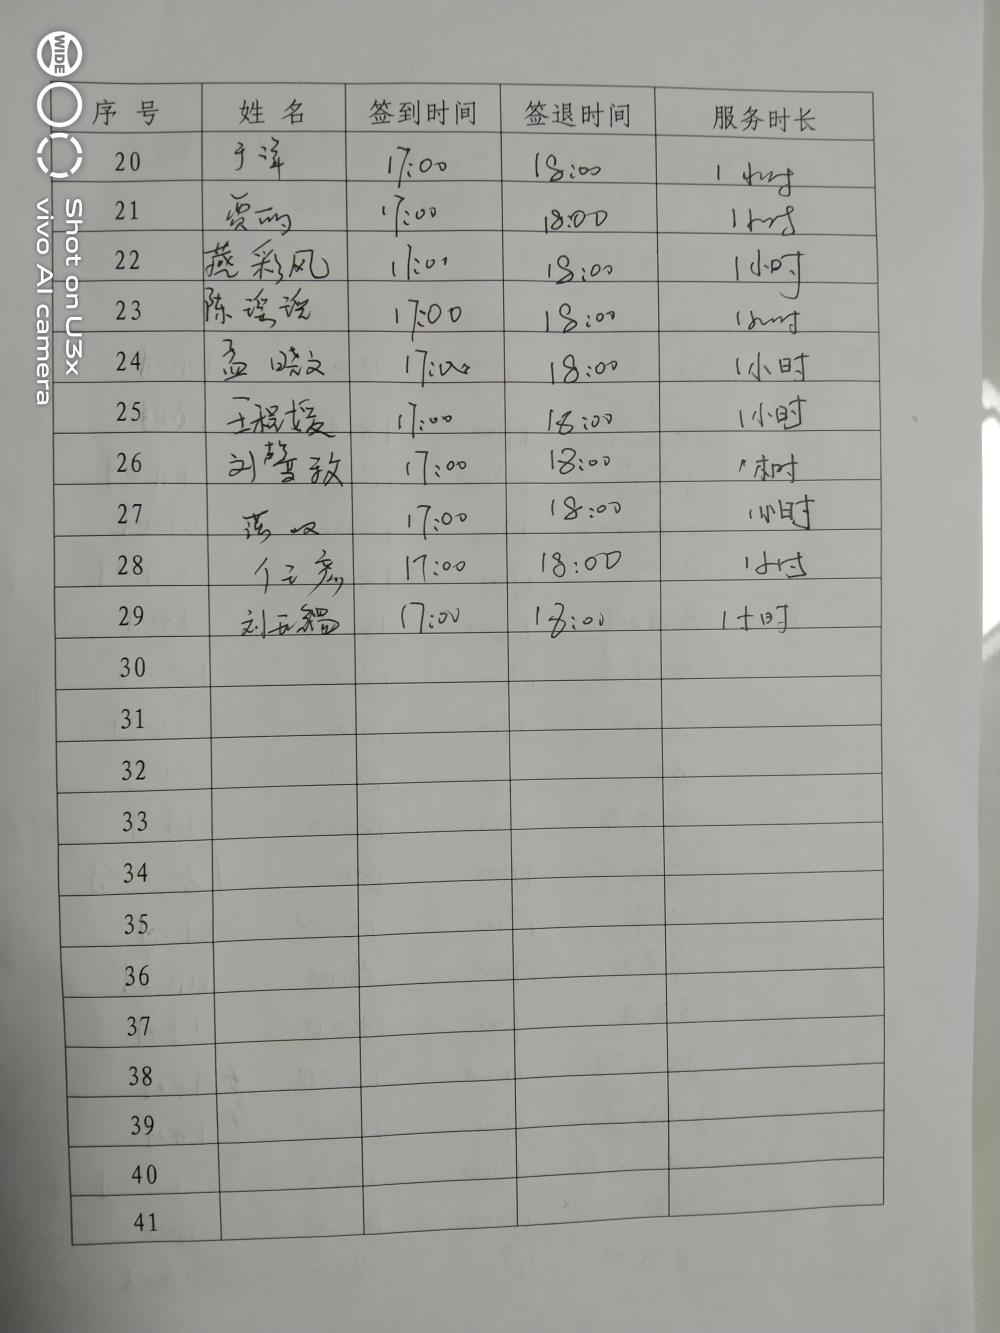 WIDE
Shot on U3x
vivo AI camera
序号 姓名 签到时间 签退时间 服务时长
20 于洋 17:00 18:00 1小时
21 贾 17:00 18:00 1小时
22 燕彩风 17:00 18:00 1小时
23 陈瑶 17:00 18:00 1小时
24 孟晓文 17:00 18:00 1小时
25 王程媛 17:00 18:00 1小时
26 刘馨 17:00 18:00 1小时
27 17:00 18:00 1小时
28 17:00 18:00 1小时
29 刘 17:00 18:00 1小时
30
31
32
33
34
35
36
37
38
39
40
41